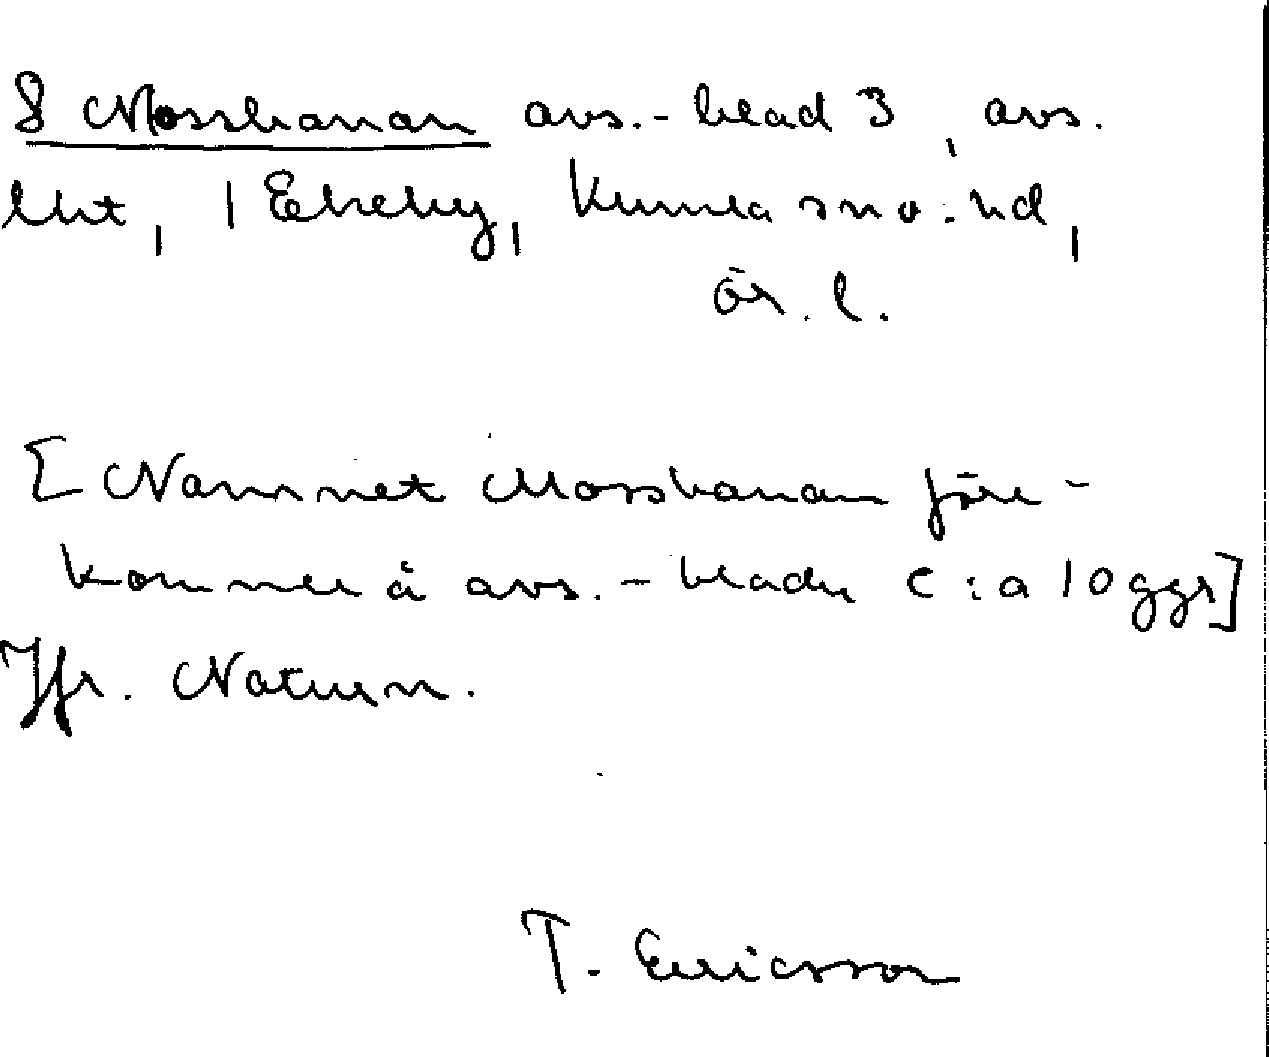 8 Mossbanan avs.-blad 3, avs.
1 Ekeby, Kumla sn o. hd,
ör. l.
[Namnet Mossbanan före-
kommer å avs.-bladen c:a 10 ggr]
Jfr. Naturn.
T. Ericsson